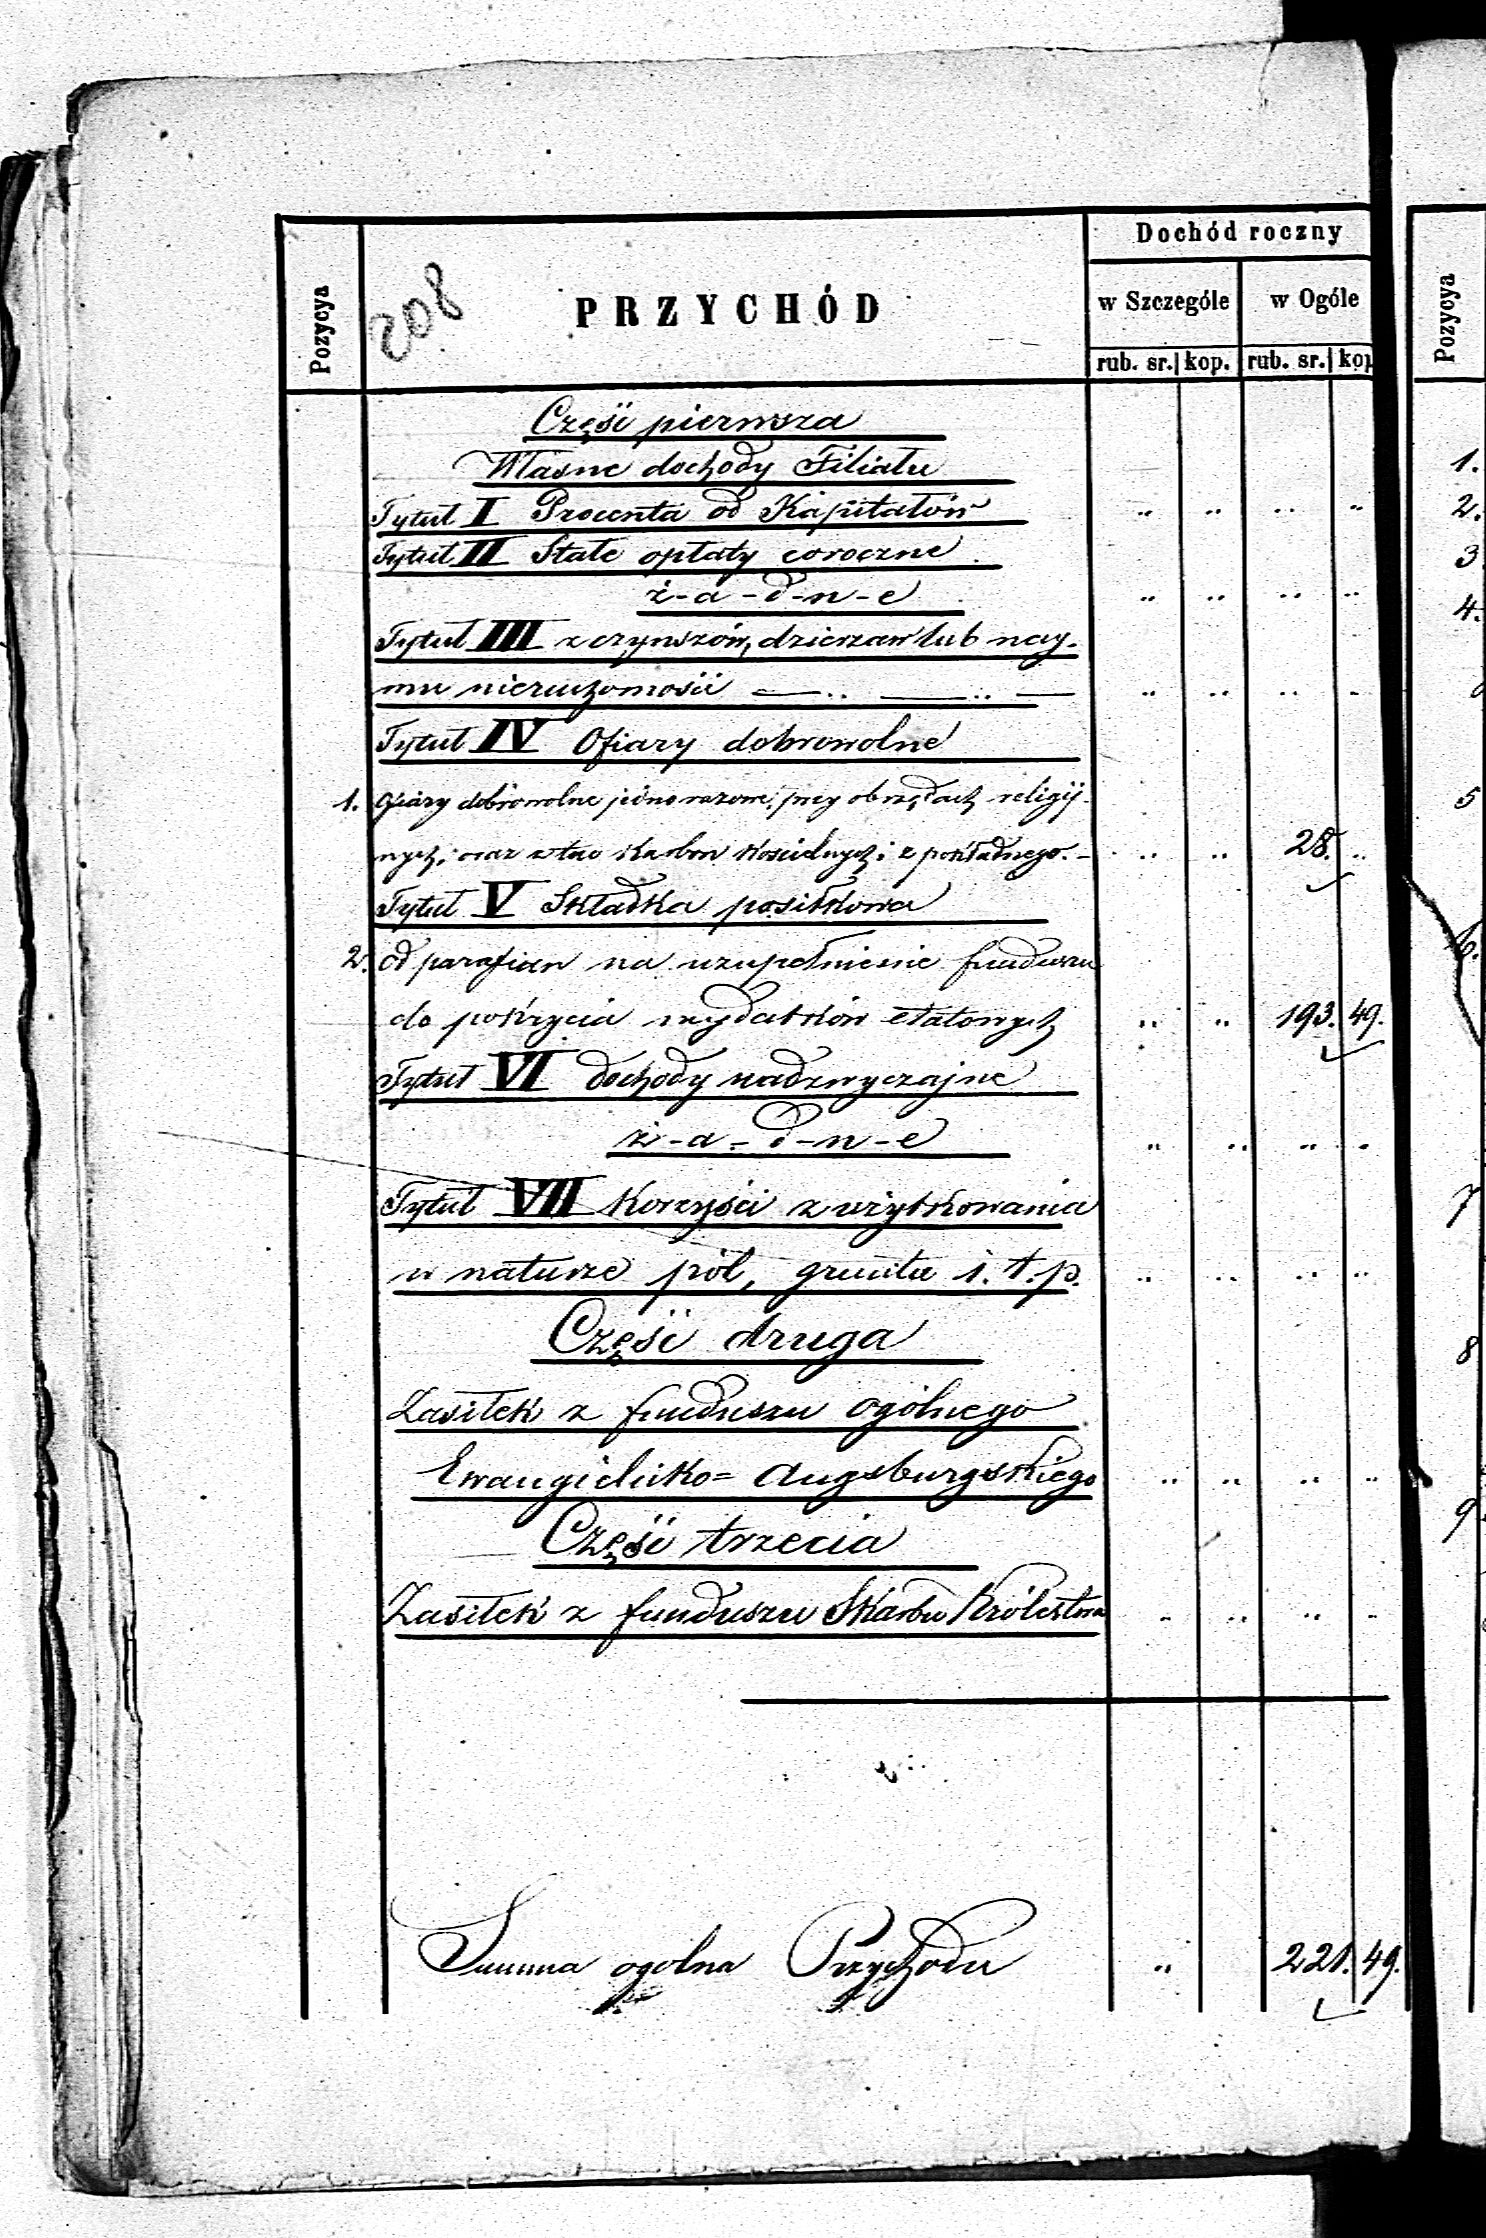 Dochód roczny
Pozycya
208
PRZYCHÓD
w Szczególe w Ogóle
Pozycya
rub. sr. kop. rub. sr. kop
Część pierwsza
Własne dochody Filiału
1.
Tytuł I Procenta od Kapitałów " " " "
2.
Tytuł II Stałe opłaty coroczne
3
ż-a-d-n-e " " " "
4.
Tytuł III z czynszów, dzierzaw lub nay-
mu nieruchomości — " — " — " " " "
Tytuł IV Ofiary dobrowolne
1. Ofiary dobrowolne jednorazowe, przy obrzędach religij-
5
nych, oraz z tac Karbon Kościelnych i z pokładnego. - " " 28. "
Tytuł V Składka posiłkowa
2. od parafian na uzupełnienie funduszu
6.
do pokrycia wydatków etatowych " " 193. 49.
Tytuł VI dochody nadzwyczajne
ż-a-d-n-e " " " "
Tytuł VII Korzyści z użytkowania
7
w naturze pól, gruntu i. t. p. " " " "
Część druga
8
Zasiłek z funduszu ogólnego
Ewangielicko= Augsburgskiego " " " "
Część trzecia
9
Zasiłek z funduszu Skarbu Królestwa " " " "
Summa ogólna Przychodu " 221. 49.